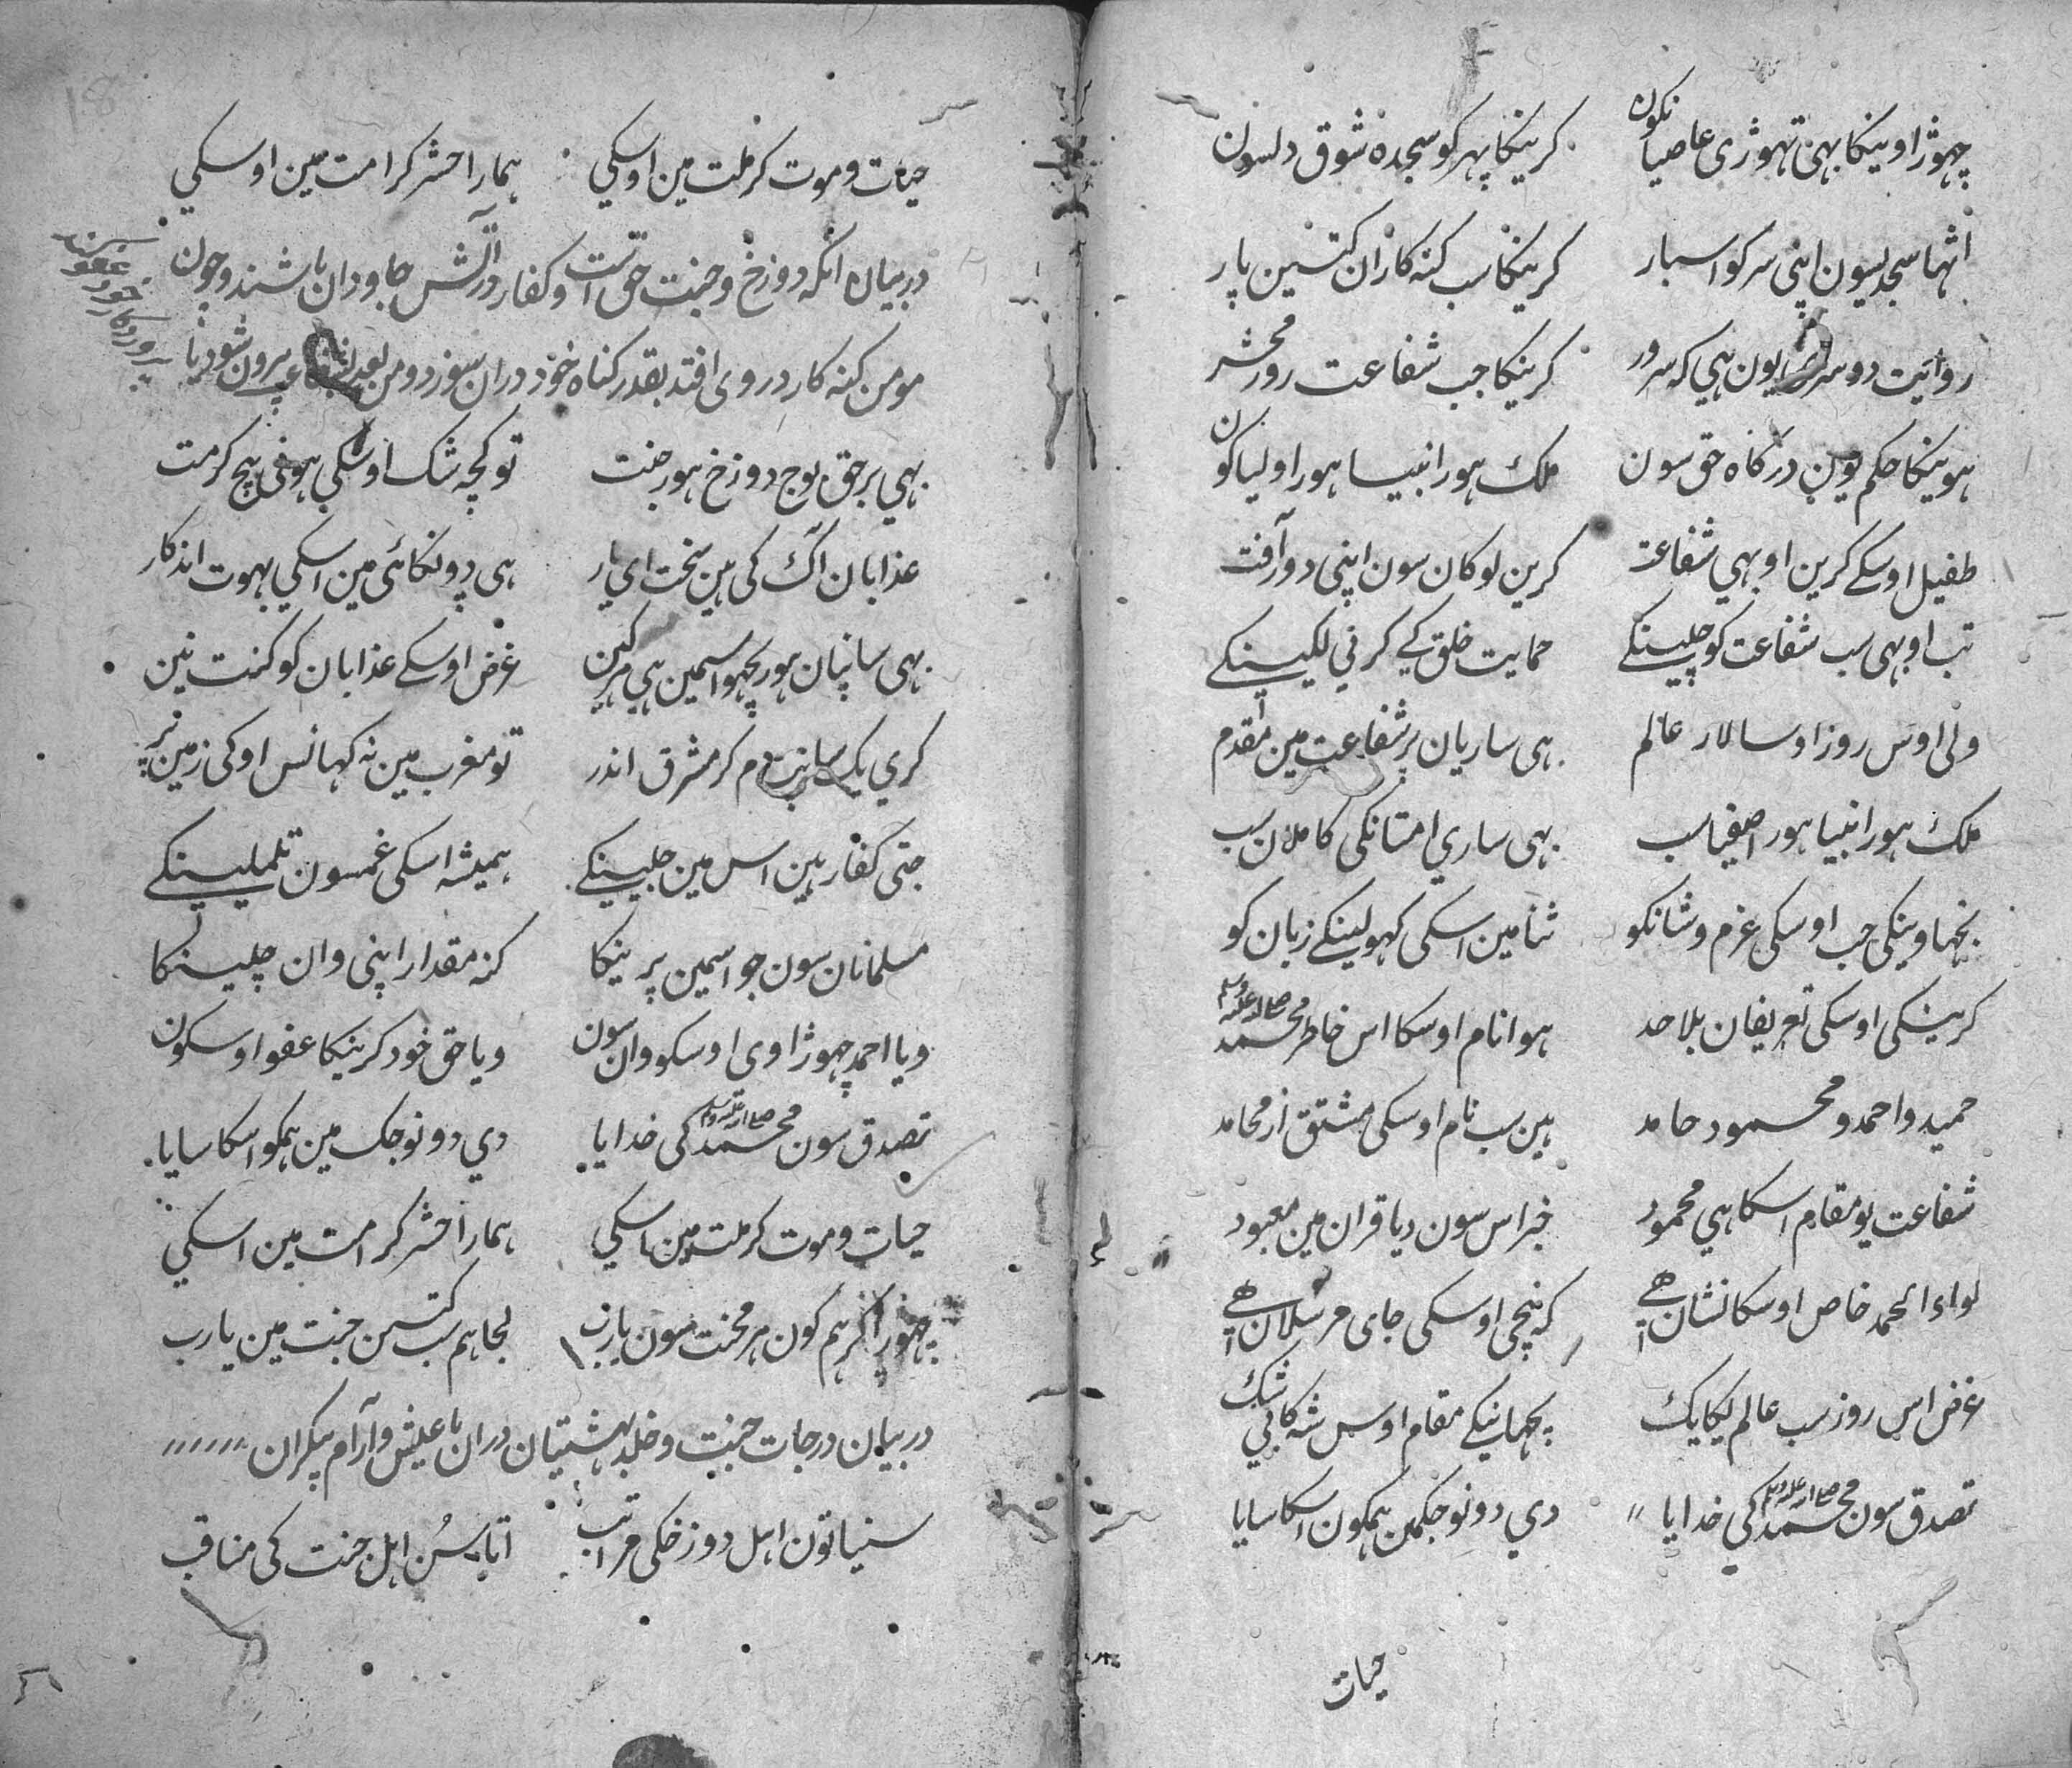 چهوژاوینکا بهی تهوژی عاصیانکون کرینکا پهر کو سجده شوق دلسون
اتهما سجدیسون اپنی سر کو اسبار کرینکا سب کنه کاران کتئین پار
روایت دوسرا یون هی که سرور کرینکا جب شفاعت روز محشر
هوینکا حکم یون درکاه حق سون ملک هور انبیا هور اولیا کون
طفیل اوسکے کرین او بهی شفاعت کرین لوکان سون اپنی دور آفت
تب او بهی سب شفاعت کو چلینکے حمایت خلق کے کرنی لکینکے
ولی اوس روز او سالار عالم هی ساریان پر شفاعت مین مقدم
ملک هور انبیا هور اصفیا سب بهی ساری امتانکی کاملان سب
بخهاوینکی جب اوسکی عزم و شانکو ثنا مین اسکی کهولینکے زبان کو
کرینکی اوسکی تعریفان بلا حد هوا نام اوسکا اس خاطر محمد صلی الله علیه وسلم
حمید و احمد و محمود حامد هین سب نام اوسکی مشتق از محامد
شفاعت یو مقام اسکا هی محمود خبر اس سون دیا قران مین معبود
لواء الحمد خاص اوسکا نشان اهے که نچی اوسکی جای مرسلان اهے
غرض اس روز سب عالم یکایک پچهانیکے مقام اوس شه کا بی شک
تصدق سون محمد صلی الله علیه وسلم کی خدایا دی دونو جکمین همکون اسکا سایا
حیات
حیات و موت کر ملت مین اوسکی همارا حشر کر امت مین اوسکی
در بیان انکه دوزخ و جنت حق است و کفار در آتش جاودان باشند و چون
مومن کنه کار در وی افتد بقدر کناه خود دران سوزد و من بعد بشفاعت بیرون شود یا
پروردکار خود عفو کند
بهی بر حق بوج دوزخ هور جنت تو کچه شک اوسکی هونی بیچ کر مت
عذابان اک کی هین سخت ای یار هی چونکائی مین اسکی بهوت اذکار
بهی سانپان هور بچهو اسمین هی پرکین غرض اوسکے عذابان کو کنت نین
کری یک سانپ دم کر مشرق اندر تو مغرب مین نه کهانس اوکی زمین پر
جتی کفار هین اس مین جلینکے همیشه اسکی غمسون تلملینکے
مسلمانان سون جو اسمین پرینکا کنه مقدار اپنی وان جلینکا
و یا احمد چهوژاوی اوسکو وان سون و یا حق خود کرینکا عفو اوسکون
تصدق سون محمد صلی الله علیه وسلم کی خدایا دی دونو جک مین همکو اسکا سایا
حیات و موت کر ملت مین اسکی همارا حشر کر امت مین اسکی
چهوژا کر هم کون هر محنت سون یارب لجا هم سب کتئین جنت مین یارب
در بیان درجات جنت و خلد بهشتیان دران با عیش و آرام بیکران
سنیا تون اهل دوزخکی مراتب اتا سن اهل جنت کی مناقب